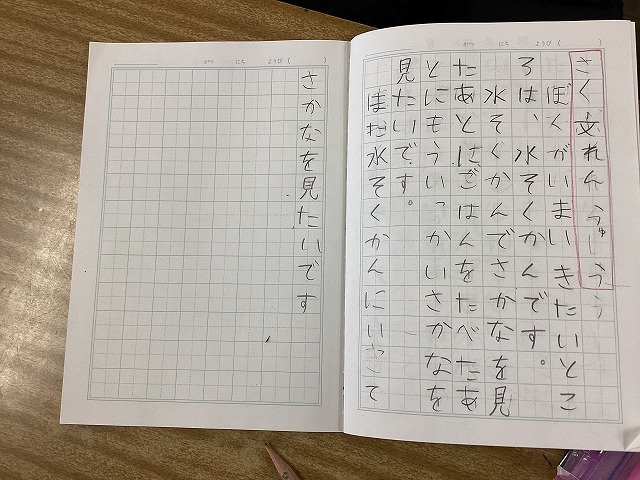 がつ にち ようび( )
さく文れんうじゅう
ぼくがいまいきたいとこ
ろは、水そくかんです。
水そくかんでさかなを見
たあとにごはんをたべたあ
とにもういっかいさかなを
見たいです。
また水そくかんにいきて
がつ にち ようび( )
さかなを見たいです